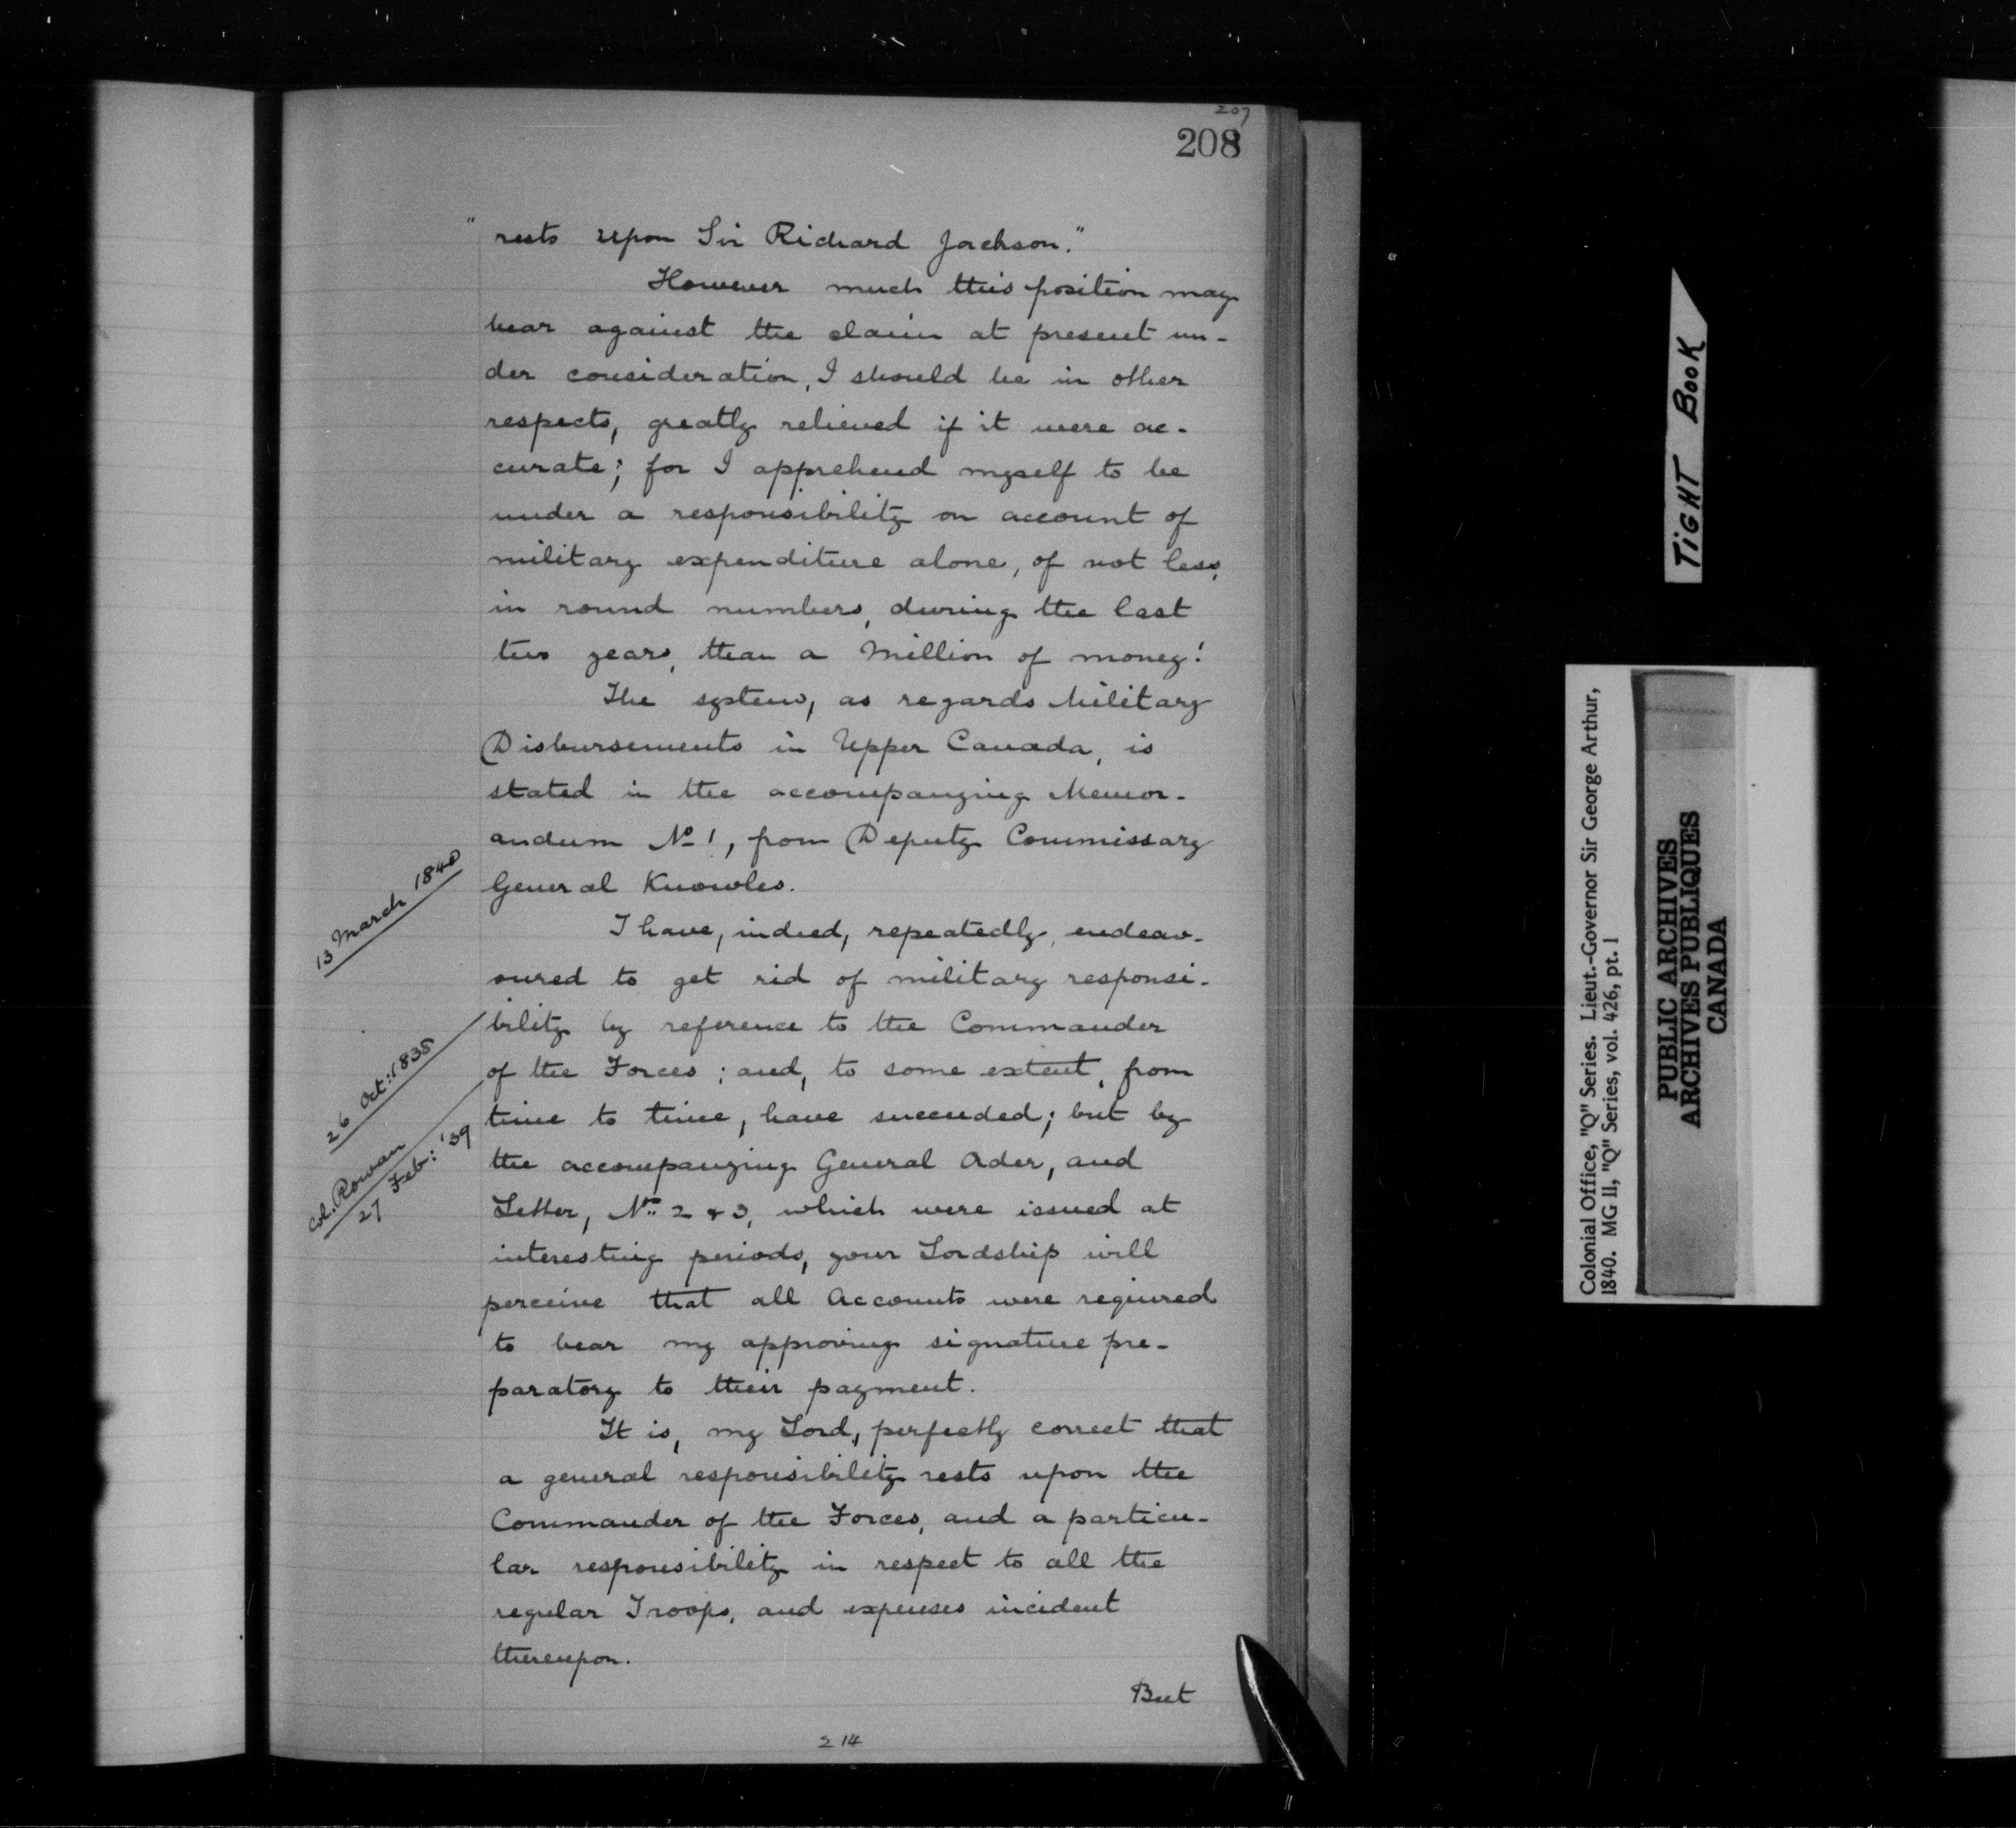 207
208
" rests upon Sir Richard Jackson."
However much this position may
bear against the claim at present un-
der consideration, I should be in other
respects, greatly relieved if it were ac-
curate; for I apprehend myself to be
under a responsibility on account of
military expenditure alone, of not less,
in round numbers, during the last
two years, than a Million of money!
The system, as regards Military
Disbursements in Upper Canada, is
stated in the accompanying Memor-
andum No 1, from Deputy Commissary
General Knowles.
13 March 1840
I have, indeed, repeatedly, endeav-
oured to get rid of military responsi-
bility by reference to the Commander
of the Forces; and, to some extent, from
time to time, have succeeded; but by
the accompanying General Order, and
Letter, Nos 2 & 3, which were issued at
interesting periods, your Lordship will
perceive that all Accounts were required
to bear my approving signature pre-
paratory to their payment.
26 Oct: 1838
Col. Rowan
27 Feb: '39
It is, my Lord, perfectly correct that
a general responsibility rests upon the
Commander of the Forces, and a particu-
lar responsibility in respect to all the
regular Troops, and expenses incident
thereupon.
But
214
TIGHT BOOK
Colonial Office, "Q" Series. Lieut.-Governor Sir George Arthur,
1840. MG II, "Q" Series, vol. 426, pt. I
PUBLIC ARCHIVES
ARCHIVES PUBLIQUES
CANADA